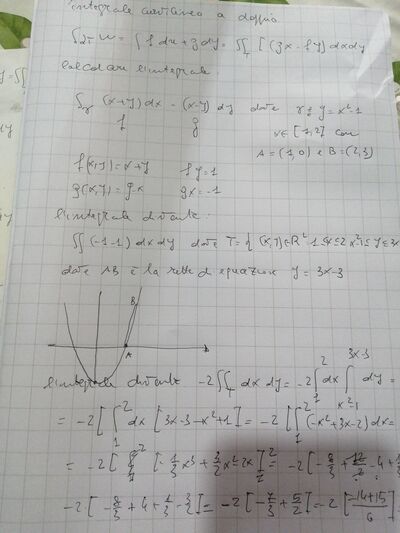 integrale curvilineo a doppio
∫∂T w = ∫ f dx + g dy = ∬_T [(gx - fy)] dx dy
calcolare l'integrale
∫γ (x+y) dx - (x-y) dy dove γ: y = x²-1
f g x∈[1,2] con
A = (1,0) e B = (2,3)
f(x,y) = x+y fy = 1
g(x,y) = gx = -1
l'integrale diventa:
∬ (-1-1) dx dy dove T = { (x,y)∈R² 1≤x≤2 x²-1≤y≤3x
dove AB è la retta di equazione y = 3x-3
B
A
l'integrale diventa -2∬_T dx dy = -2 ∫₁² dx ∫_{x²-1}^{3x-3} dy =
= -2 [ ∫₁² dx [3x-3-x²+1] = -2 [ ∫₁² (-x²+3x-2) dx =
= -2 [ [-1/3 x³ + 3/2 x² - 2x]₁² = -2 [ -8/3 + 12/2 - 4 + 1/3
-2 [ -8/3 + 4 + 1/3 - 3/2 ] = -2 [ -7/3 + 5/2 ] = -2 [ (-14+15)/6 ]